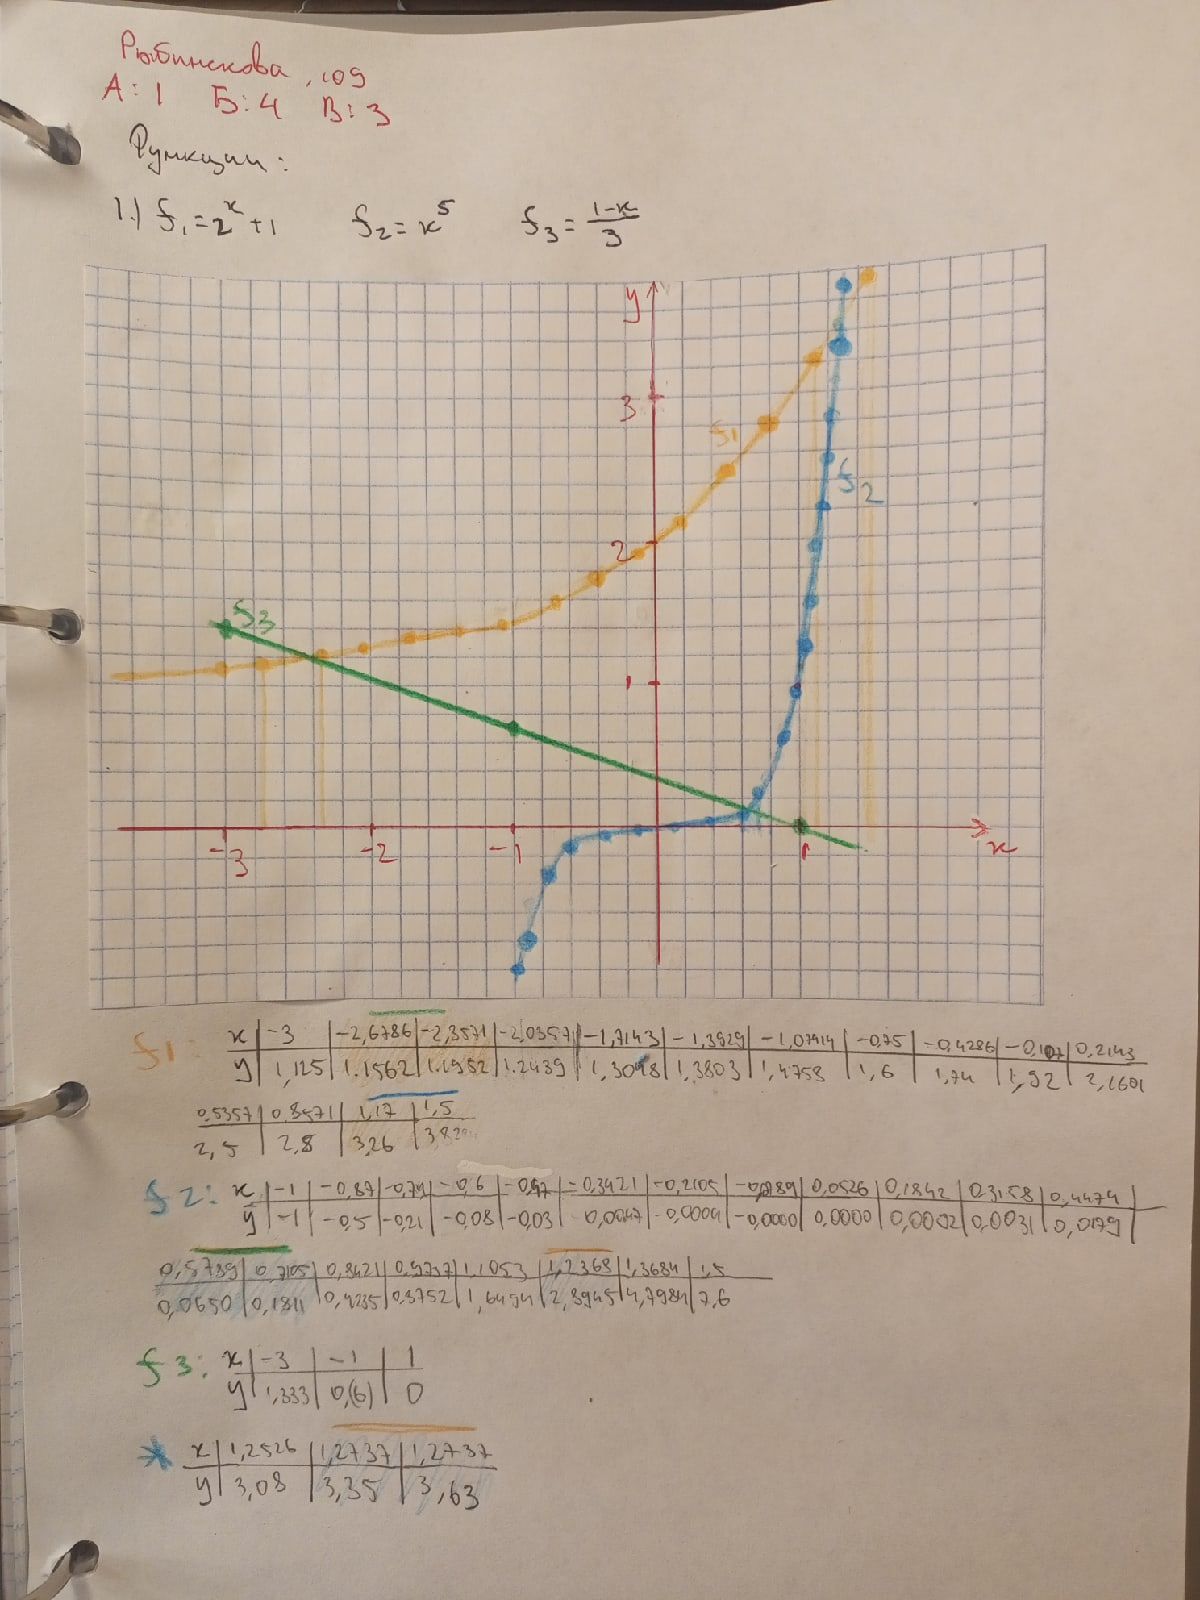 Рыбинскова, 109
А: 1 Б: 4 В: 3
Функции:
1.) f₁ = 2ˣ + 1 f₂ = x⁵ f₃ = (1-x)/3
y
3
f₁
f₂
2
f₃
1
-3 -2 -1 1 x
f1: x | -3 | -2,6786 | -2,3571 | -2,0357 | -1,7143 | -1,3929 | | -0,75 | -0,4286 | -0,107 | 0,2143
y | 1,125 | 1.1562 | 1.1952 | 1.2439 | 1,3048 | 1,3803 | 1,4758 | 1,6 | 1,74 | 1,92 | 2,1601
0,5357 | 0,8571 | 1,17 | 1,5
2,5 | 2,8 | 3,26 |
f2: x | -1 | -0,87 | -0,74 | -0,6 | -0,47 | -0,3421 | -0,2105 | | 0,0526 | 0,1842 | 0,3158 | 0,4474
y | -1 | -0,5 | -0,21 | -0,08 | -0,03 | -0,0047 | -0,0004 | -0,0000 | 0,0000 | 0,0002 | 0,0031 | 0,0179
0,5789 | 0,7105 | 0,8421 | 0,9737 | 1,1053 | 1,2368 | 1,3684 | 1,5
0,0650 | 0,1811 | 0,4235 | 0,8752 | 1,6494 | 2,8945 | 4,7984 | 7,6
f3: x | -3 | -1 | 1
y | 1,333 | 0,(6) | 0
* x | 1,2526 | 1,2737 | 1,2737
y | 3,08 | 3,35 | 3,63